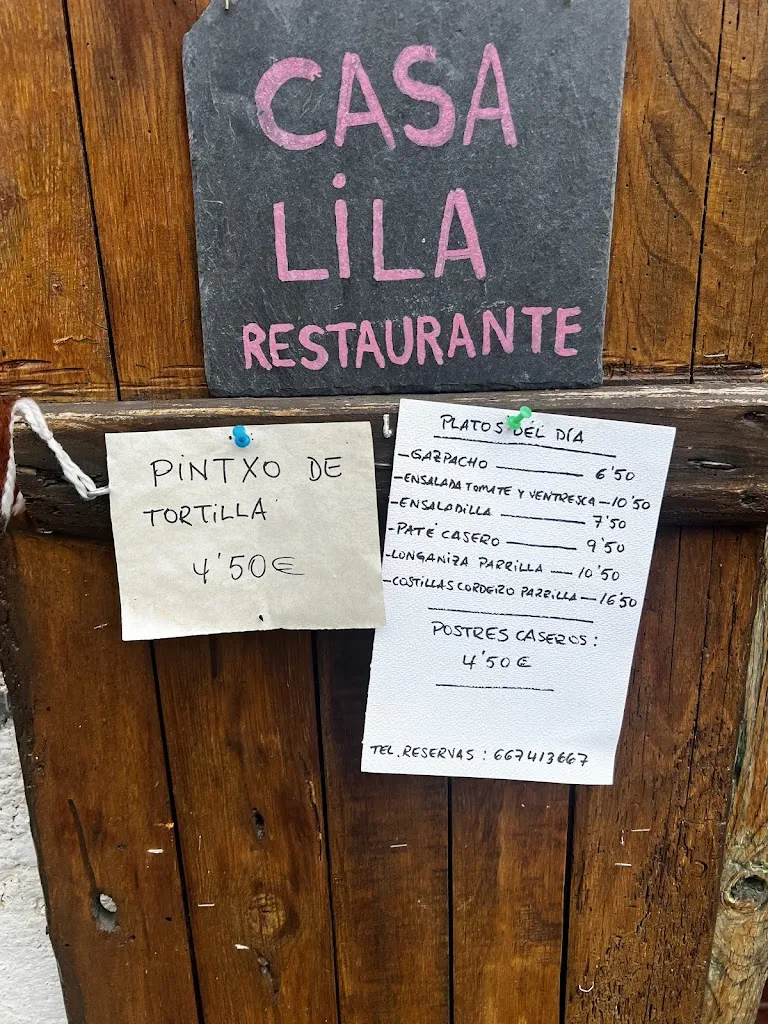 CASA
LiLA
RESTAURANTE
PiNTXO DE
TORTiLLA
4'50€
PLATOS DEL DÍA
-GAZPACHO — 6'50
-ENSALADA TOMATE Y VENTRESCA — 10'50
-ENSALADILLA — 7'50
-PATÉ CASERO — 9'50
-LONGANIZA PARRILLA — 10'50
-COSTILLAS CORDERO PARRILLA — 16'50
POSTRES CASEROS:
4'50€
TEL. RESERVAS : 667413667